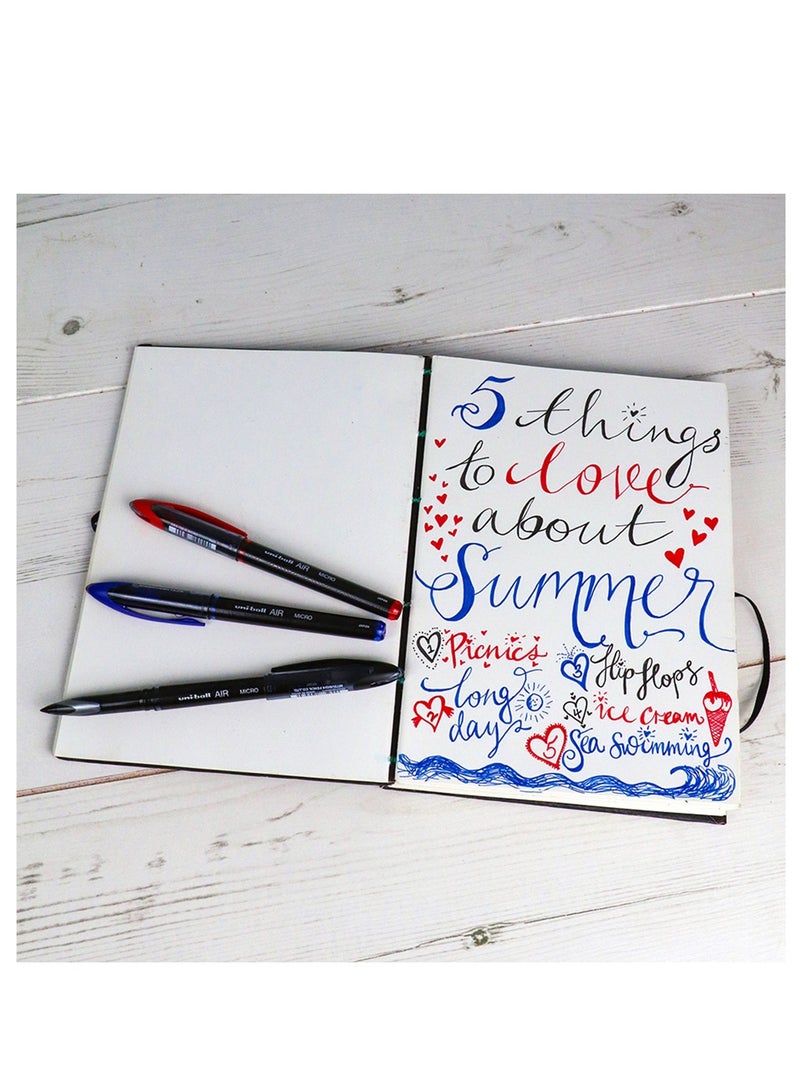 5 things
to love
about
Summer
1 Picnics
2 long
days
3 flipflops
4 ice cream
5 Sea swimming
uni-ball AIR MICRO
uni-ball AIR MICRO
uni-ball AIR MICRO